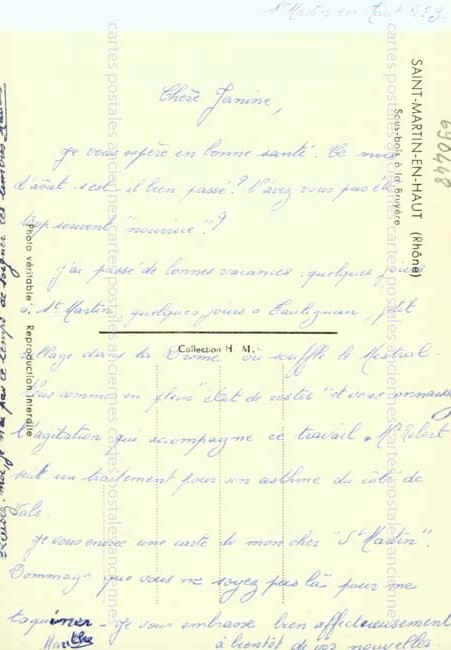 St Martin en Haut
Chère Janine,
Je vous espère en bonne santé. Ce mois
d'août s'est il bien passé? N'avez-vous pas été
trop souvent "nourrice"?
j'ai passé de bonnes vacances : quelques jours
à St Martin, quelques jours à Taulignan, petit
village dans la Drôme où souffle le Mistral.
Nous sommes en plein "état de restes" et vous connaissez
l'agitation qui accompagne ce travail. Mr Robert
suit un traitement pour son asthme du côté de
Vals.
Je vous envoie une carte de mon cher "St Martin".
Dommage que vous ne soyez pas là pour me
taquiner - Je vous embrasse bien affectueusement
à bientôt de vos nouvelles.
excusez-moi je n'ai pas le temps de soigner
SAINT-MARTIN-EN-HAUT (Rhône)
Sous-bois à la Bruyère
690448
Photo véritable Reproduction interdite
Collection H. M.
cartes postales anciennes cartes postales anciennes